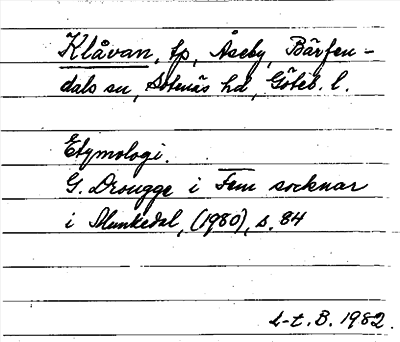 Klåvan, tp, Åseby, Bärfen-
dals sn, Sotenäs hd, Göteb. l.
Etymologi.
G. Drougge i Fem socknar
i Munkedal, (1980), s. 84
s-t. B. 1982.